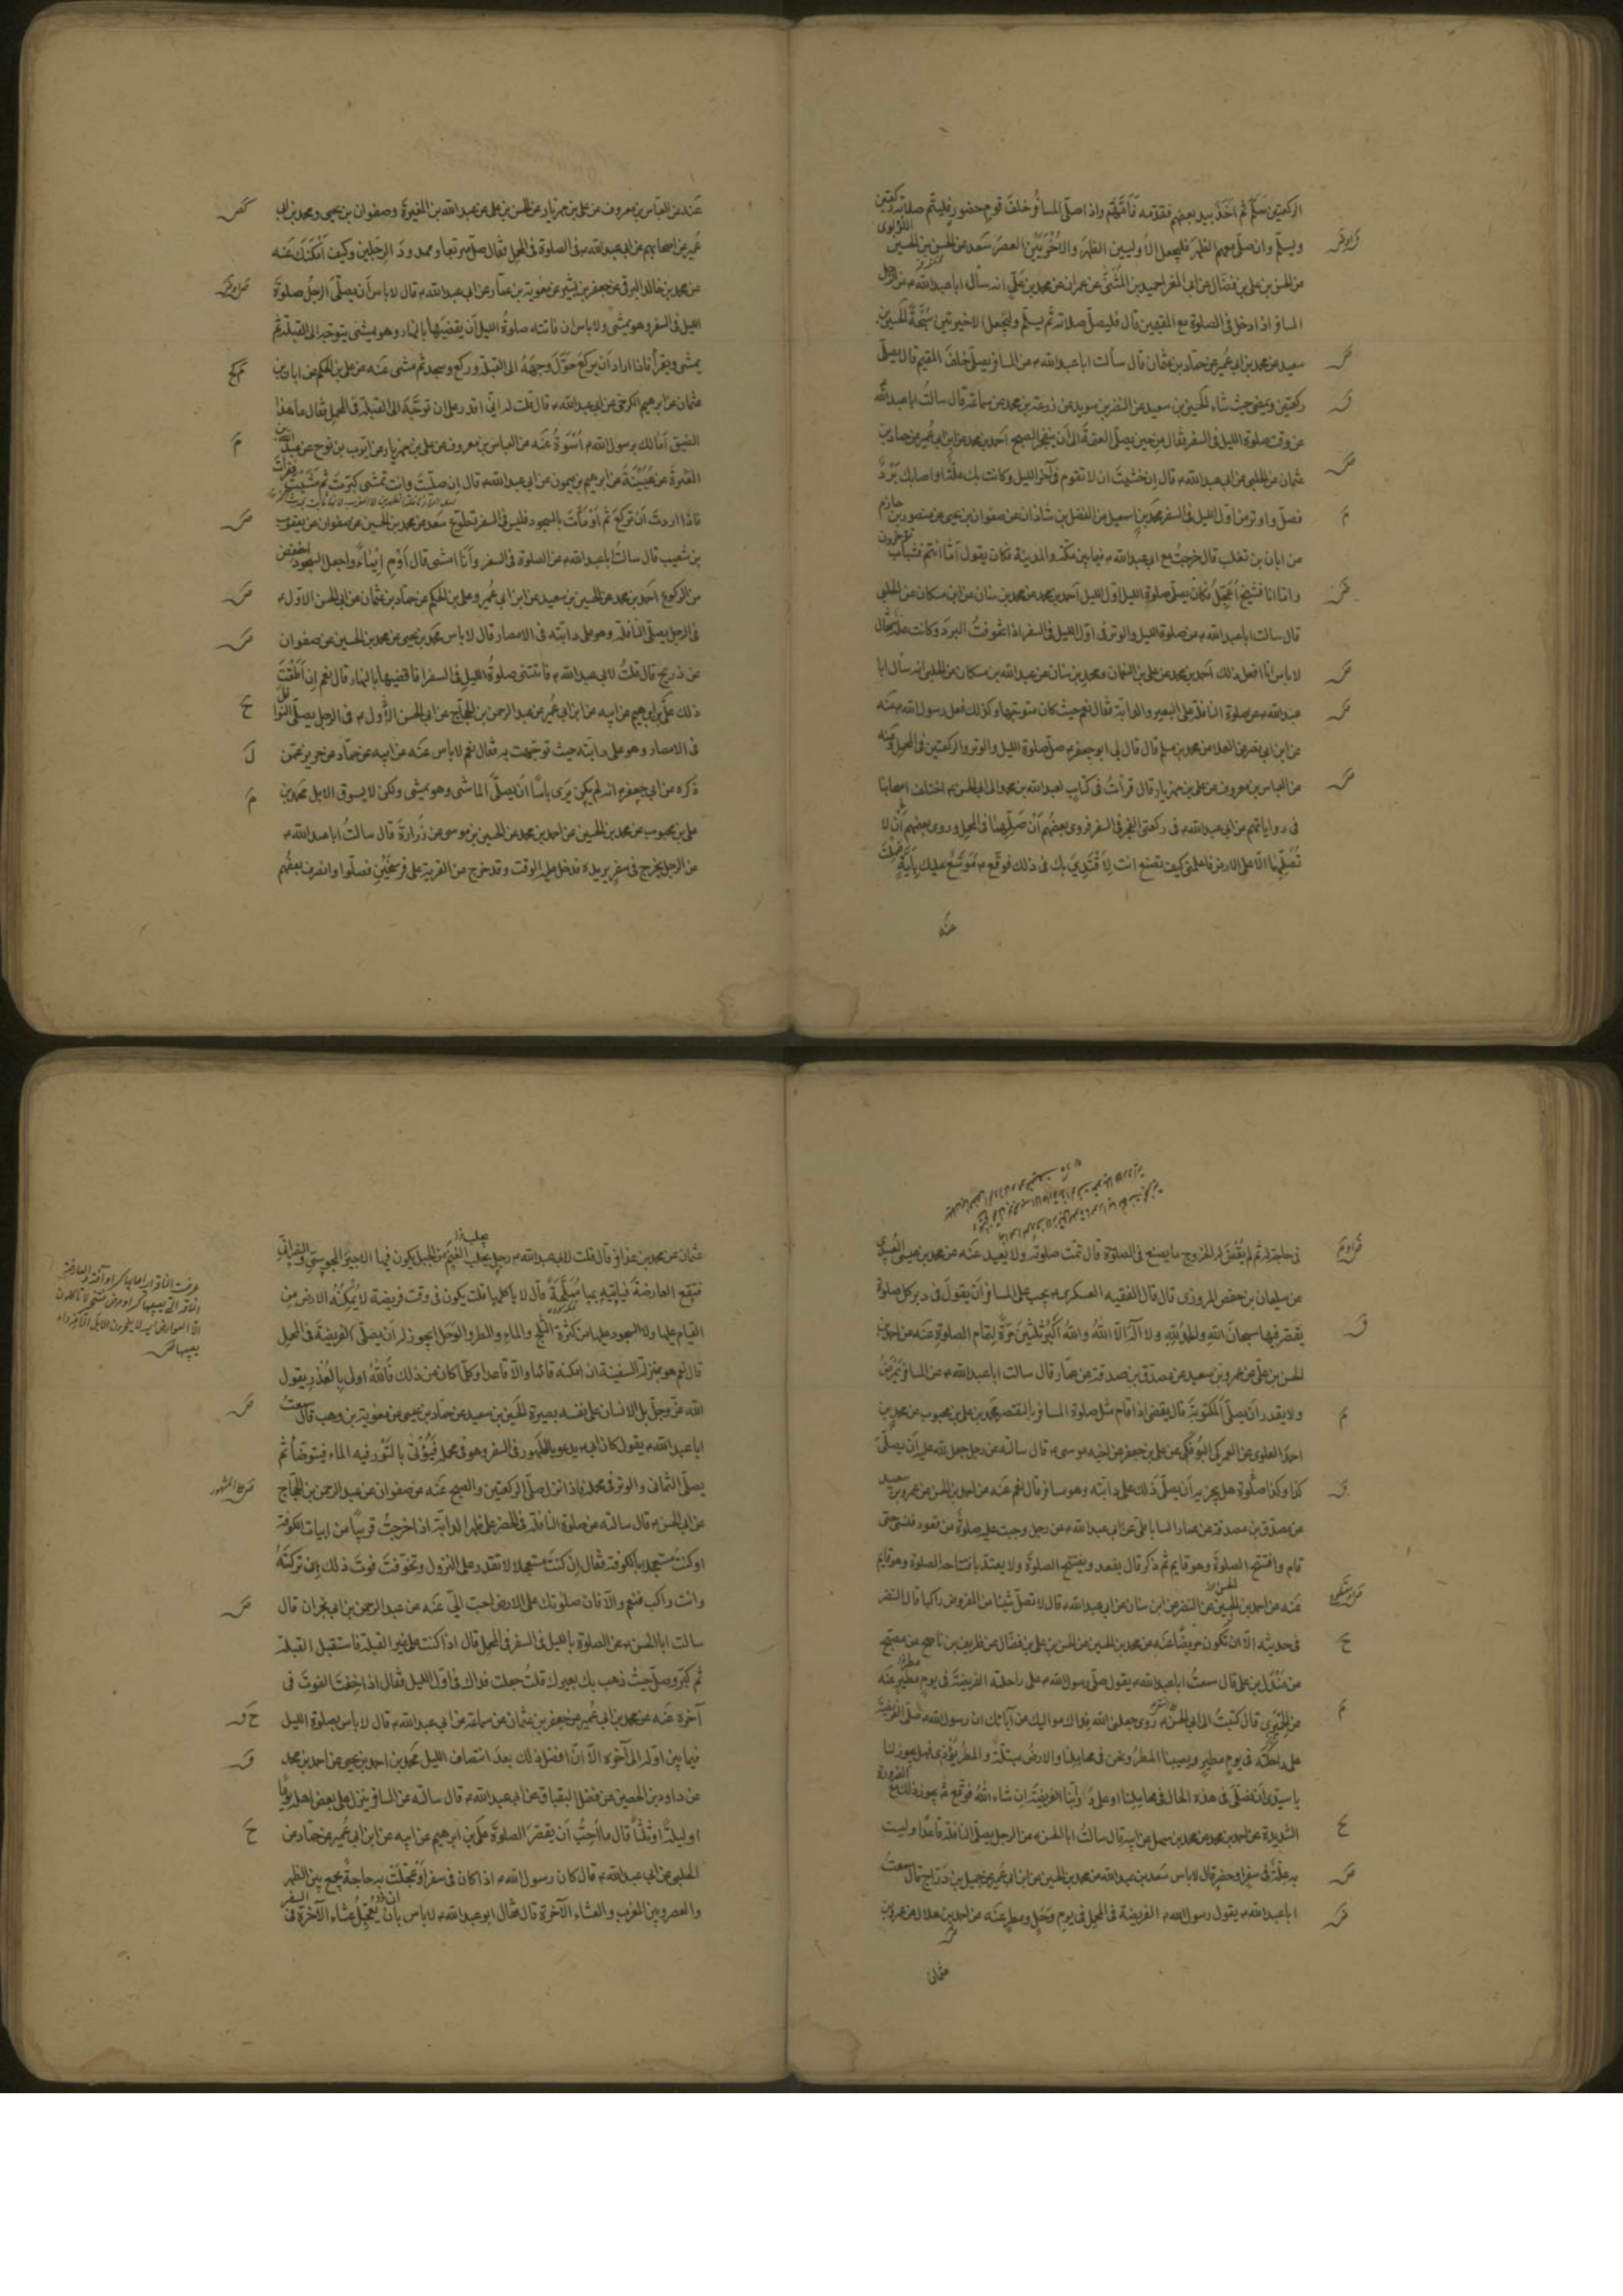 الركعتين سلّم ثم اخذ بيد بعضهم فقدّمه فامّهم واذا صلّى المسافر خلف قوم حضور فليتم صلاته ركعتين
ويسلّم وان صلّى معهم الظهر فليجعل الاوليين الظهر والاخريين العصر سعد عن الحسن بن الحسين اللؤلؤى
عن الحسن بن على بن فضال عن ابى المغرا حميد بن المثنى عن عمران عن محمد بن على انه سأل ابا عبدالله عن الرجل
المسافر اذا دخل فى الصلوة مع المقيمين قال فليصلّ صلاته ثم يسلّم وليجعل الاخيرتين سبحة الحسين بن
سعيد عن محمد بن ابى عمير عن حماد بن عثمان قال سألت ابا عبدالله عن المسافر يصلّى خلف المقيم قال يصلّى
ركعتين ويمضى حيث شاء الحسين بن سعيد عن النضر بن سويد عن زرعة بن محمد عن سماعة قال سالت ابا عبدالله
عن وقت صلوة الليل فى السفر فقال من حين يصلّى العتمة الى ان ينفجر الصبح احمد بن محمد عن ابن ابى عمير عن حماد بن
عثمان عن الحلبى عن ابى عبدالله قال ان خشيت ان لا تقوم فى آخر الليل وكانت بك علّة او اصابك برد
فصلّ واوتر من اوّل الليل فى السفر محمد بن اسمعيل عن الفضل بن شاذان عن صفوان بن يحيى عن منصور بن حازم
عن ابان بن تغلب قال خرجت مع ابى عبدالله فيما بين مكة والمدينة فكان يقول امّا انتم فشباب تؤخرون
وامّا انا فشيخ اعجّل فكان يصلّى صلوة الليل اوّل الليل احمد بن محمد عن محمد بن سنان عن ابن مسكان عن الحلبى
قال سالت ابا عبدالله عن صلوة الليل والوتر فى اوّل الليل فى السفر اذا تخوفت البرد وكانت علة فقال
لا باس انا افعل ذلك احمد بن محمد عن على بن النعمان ومحمد بن سنان عن عبدالله بن مسكان عن الحلبى انه سأل ابا
عبدالله عن صلوة النافلة على البعير والدابة فقال نعم حيث كان متوجها وكذلك فعل رسول الله عنه
عن ابن ابى نصر عن العلا عن محمد بن مسلم قال قال لى ابو جعفر صلّ صلوة الليل والوتر والركعتين فى المحمل وعنه
عن العباس بن معروف عن على بن مهزيار قال قرأت فى كتاب لعبدالله بن محمد الى ابى الحسن اختلف اصحابنا
فى رواياتهم عن ابى عبدالله فى ركعتى الفجر فى السفر فروى بعضهم ان صلّهما فى المحمل وروى بعضهم ان لا
تصلّهما الّا على الارض فاعلمنى كيف تصنع انت لاقتدى بك فى ذلك فوقع موسّع عليك بايّة عملت
عنه
عنه عن العباس بن معروف عن على بن مهزيار عن الحسن بن على عن عبدالله بن المغيرة وصفوان بن يحيى ومحمد بن ابى
عمير عن اصحابهم عن ابى عبدالله فى الصلوة فى المحمل فقال صلّ متربعا وممدود الرجلين وكيف امكنك عنه
عن محمد بن خالد البرقى عن جعفر بن بشير عن معوية بن عمار عن ابى عبدالله قال لا باس أن يصلّى الرجل صلوة
الليل فى السفر وهو يمشى ولا باس ان فاتته صلوة الليل أن يقضيها بالنهار وهو يمشى يتوجه الى القبلة ثم
يمشى ويقرأ فاذا اراد أن يركع حوّل وجهه الى القبلة وركع وسجد ثم مشى عنه عن على بن الحكم عن ابان بن
عثمان عن ابرهيم الكرخى عن ابى عبدالله قال قلت له انى اقدر على ان توجّه الى القبلة فى المحمل فقال ما هذا
الضيق أما لك برسول الله اسوة عنه عن العباس بن معروف عن على بن مهزيار عن ايوب بن نوح عن عبدالله بن
المغيرة عن عيينة عن ابرهيم بن ميمون عن ابى عبدالله قال ان صلّيت وانت تمشى كبّرت ثم مشيت فقرأت
فاذا اردت أن تركع ثم أومأت بالسجود فليس فى السفر تطوّع سعد عن محمد بن الحسين عن صفوان عن يعقوب
بن شعيب قال سالت ابا عبدالله عن الصلوة فى السفر وأنا امشى قال أوم ايماء واجعل السجود اخفض
من الركوع احمد بن محمد عن الحسين بن سعيد عن ابن ابى عمير وعلى بن الحكم عن حماد بن عثمان عن ابى الحسن الاول
فى الرجل يصلّى النافلة وهو على دابته فى الامصار قال لا باس محمد بن يحيى عن محمد بن الحسين عن صفوان
عن ذريح قال قلت لابى عبدالله فاتتنى صلوة الليل فى السفر افاقضيها بالنهار قال نعم ان اطقت
ذلك على بن ابرهيم عن ابيه عن ابن ابى عمير عن عبد الرحمن بن الحجاج عن ابى الحسن الاول فى الرجل يصلّى النوافل
فى الامصار وهو على دابته حيث توجهت به فقال نعم لا باس عنه عن ابيه عن حماد عن حريز عمّن
ذكره عن ابى جعفر انه لم يكن يرى باسا أن يصلّى الماشى وهو يمشى ولكن لا يسوق الابل محمد بن
على بن محبوب عن محمد بن الحسين عن احمد بن محمد عن الحسين بن موسى عن زرارة قال سالت ابا عبدالله
عن الرجل يخرج فى سفر يريده فدخل عليه الوقت وقد خرج من القرية على فرسخين فصلّوا وانصرف بعضهم
فى حاجة له ثم لم يقض له الخروج ما يصنع فى الصلوة قال تمت صلوته ولا يعيد عنه عن محمد بن عيسى العبيدى
عن سليمان بن حفص المروزى قال قال الفقيه العسكرى يجب على المسافر أن يقول فى دبر كل صلوة
يقصر فيها سبحان الله والحمد لله ولا اله الّا الله والله اكبر ثلثين مرّة لتمام الصلوة عنه عن احمد بن
الحسن بن على عن عمرو بن سعيد عن مصدق بن صدقة عن عمار قال سالت ابا عبدالله عن المسافر يمرض
ولا يقدر ان يصلّى المكتوبة قال يقضى اذا قام مثل صلوة المسافر بالتقصير محمد بن على بن محبوب عن محمد بن
احمد العلوى عن العمركى البوفكى عن على بن جعفر عن اخيه موسى قال سالته عن رجل جعل لله عليه أن يصلّى
كذا وكذا صلوة هل يجزيه أن يصلّى ذلك على دابته وهو مسافر قال نعم عنه عن احمد بن الحسن عن عمرو بن سعيد
عن مصدق بن صدقة عن عمار الساباطى عن ابى عبدالله عن رجل وجبت عليه صلوة من قعود فنسى حتى
قام وافتتح الصلوة وهو قايم ثم ذكر قال يقعد ويفتتح الصلوة ولا يعتدّ بافتتاحه الصلوة وهو قايم
عنه عن احمد بن الحسين عن النضر عن ابن سنان عن ابى عبدالله قال لا تصلّ شيئا من المفروض راكبا قال النضر
فى حديثه الّا ان تكون مريضا عنه عن محمد بن الحسين عن الحسن بن على بن فضال عن ظريف بن ناصح عن مصبح
عن مندل بن على قال سمعت ابا عبدالله يقول صلّى رسول الله على راحلته الفريضة فى يوم مطير عنه
عن الحميرى قال كتبت الى ابى الحسن روى جعلنى الله فداك مواليك عن آبائك ان رسول الله صلّى الفريضة
على راحلته فى يوم مطير ويصيبنا المطر ونحن فى محاملنا والارض مبتلّة والمطر يؤذى فهل يجوز لنا
يا سيدى أن نصلّى فى هذه الحال فى محاملنا او على دوابّنا الفريضة ان شاء الله فوقّع يجوز ذلك مع الضرورة
الشديدة عن احمد بن محمد عن محمد بن سهل عن ابيه قال سالت ابا الحسن عن الرجل يصلّى النافلة قاعدا وليست
به علّة فى سفر او حضر قال لا باس سعد بن عبدالله عن محمد بن الحسين عن ابن ابى عمير عن جميل بن دراج قال سمعت
ابا عبدالله يقول رسول الله الفريضة فى المحمل فى يوم وحل ومطر عنه عن احمد بن هلال عن عمرو بن
عثمان
عثمان عن محمد بن عذافر قال قلت لابى عبدالله رجل يجلب الغنم من الجبل يكون فيها الاجير المجوسى والنصرانى
فتقع العارضة فيأتيه بها مملّحة قال لا ياكلها قلت يكون فى وقت فريضة لا يمكنه الارض من
القيام عليها ولا السجود عليها من كثرة الثلج والماء والمطر والوحل ايجوز له أن يصلّى الفريضة فى المحمل
قال نعم هو بمنزلة السفينة ان امكنه قائما والّا قاعدا وكلّ ما كان من ذلك فالله اولى بالعذر يقول
الله عزّ وجلّ بل الانسان على نفسه بصيرة الحسين بن سعيد عن حماد بن عيسى عن معوية بن وهب قال سمعت
ابا عبدالله يقول كان ابى يدعو بالطهور فى السفر وهو فى محمله فيؤتى بالتور فيه الماء فيتوضأ ثم
يصلّى الثمانى والوتر فى محمله فاذا نزل صلّى الركعتين والصبح عنه عن صفوان عن عبد الرحمن بن الحجاج
عن ابى الحسن قال سالته عن صلوة النافلة فى الحضر على ظهر الدابة اذا خرجت قريبا من ابيات الكوفة
او كنت مستعجلا بالكوفة فقال ان كنت مستعجلا لا تقدر على النزول وتخوّفت فوت ذلك ان تركته
وانت راكب فنعم والّا فان صلوتك على الارض احب الىّ عنه عن عبد الرحمن بن ابى نجران قال
سالت ابا الحسن عن الصلوة بالليل فى السفر فى المحمل قال اذا كنت على غير القبلة فاستقبل القبلة
ثم كبّر وصلّ حيث ذهب بك بعيرك قلت جعلت فداك فى اوّل الليل فقال اذا خفت الفوت فى
آخره عنه عن محمد بن ابى عمير عن جعفر بن عثمان عن سماعة عن ابى عبدالله قال لا باس بصلوة الليل
فيما بين اوّله الى آخره الّا انّ افضل ذلك بعد انتصاف الليل محمد بن احمد بن يحيى عن احمد بن محمد
عن داود بن الحصين عن فضل البقباق عن ابى عبدالله قال سالته عن المسافر ينزل على بعض اهله يوما
او ليلة او ثلثا قال ما احبّ أن يقصر الصلوة على بن ابرهيم عن ابيه عن ابن ابى عمير عن حماد عن
الحلبى عن ابى عبدالله قال كان رسول الله اذا كان فى سفر او عجلت به حاجة يجمع بين الظهر
والعصر وبين المغرب والعشاء الآخرة قال فقال ابو عبدالله لا باس بان يعجّل عشاء الآخرة فى السفر